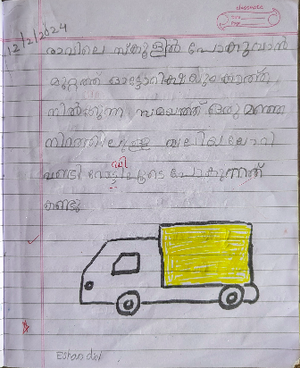 classmate
12/2/2024
രാവിലെ സ്കൂളിൽ പോകുവാൻ
മുറ്റത്ത് ഓട്ടോറിക്ഷയും കാത്തു
നിൽക്കുന്ന സമയത്ത് ഒരു മഞ്ഞ
നിറത്തിലുള്ള വലിയ ലോറി
വണ്ടി റോട്ടിലൂടെ പോകുന്നത്
കണ്ടു